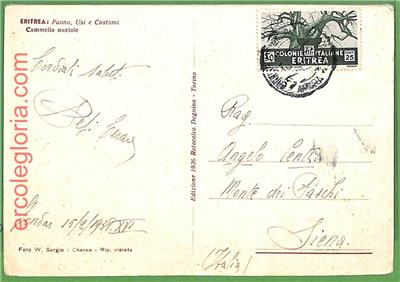 ERITREA: Fauna, Usi e Costumi
Cammello nuziale
Cordiali saluti
15/2/1938. XVI
Foto W. Sergio - Cheren - Rip. vietata
Edizione 1936 Rotocalco Dagnino - Torino
COLONIE ITALIANE
50 ERITREA 25
Rag.
Angelo
Monte dei Paschi
Siena
(Italia)
ercolegloria.com